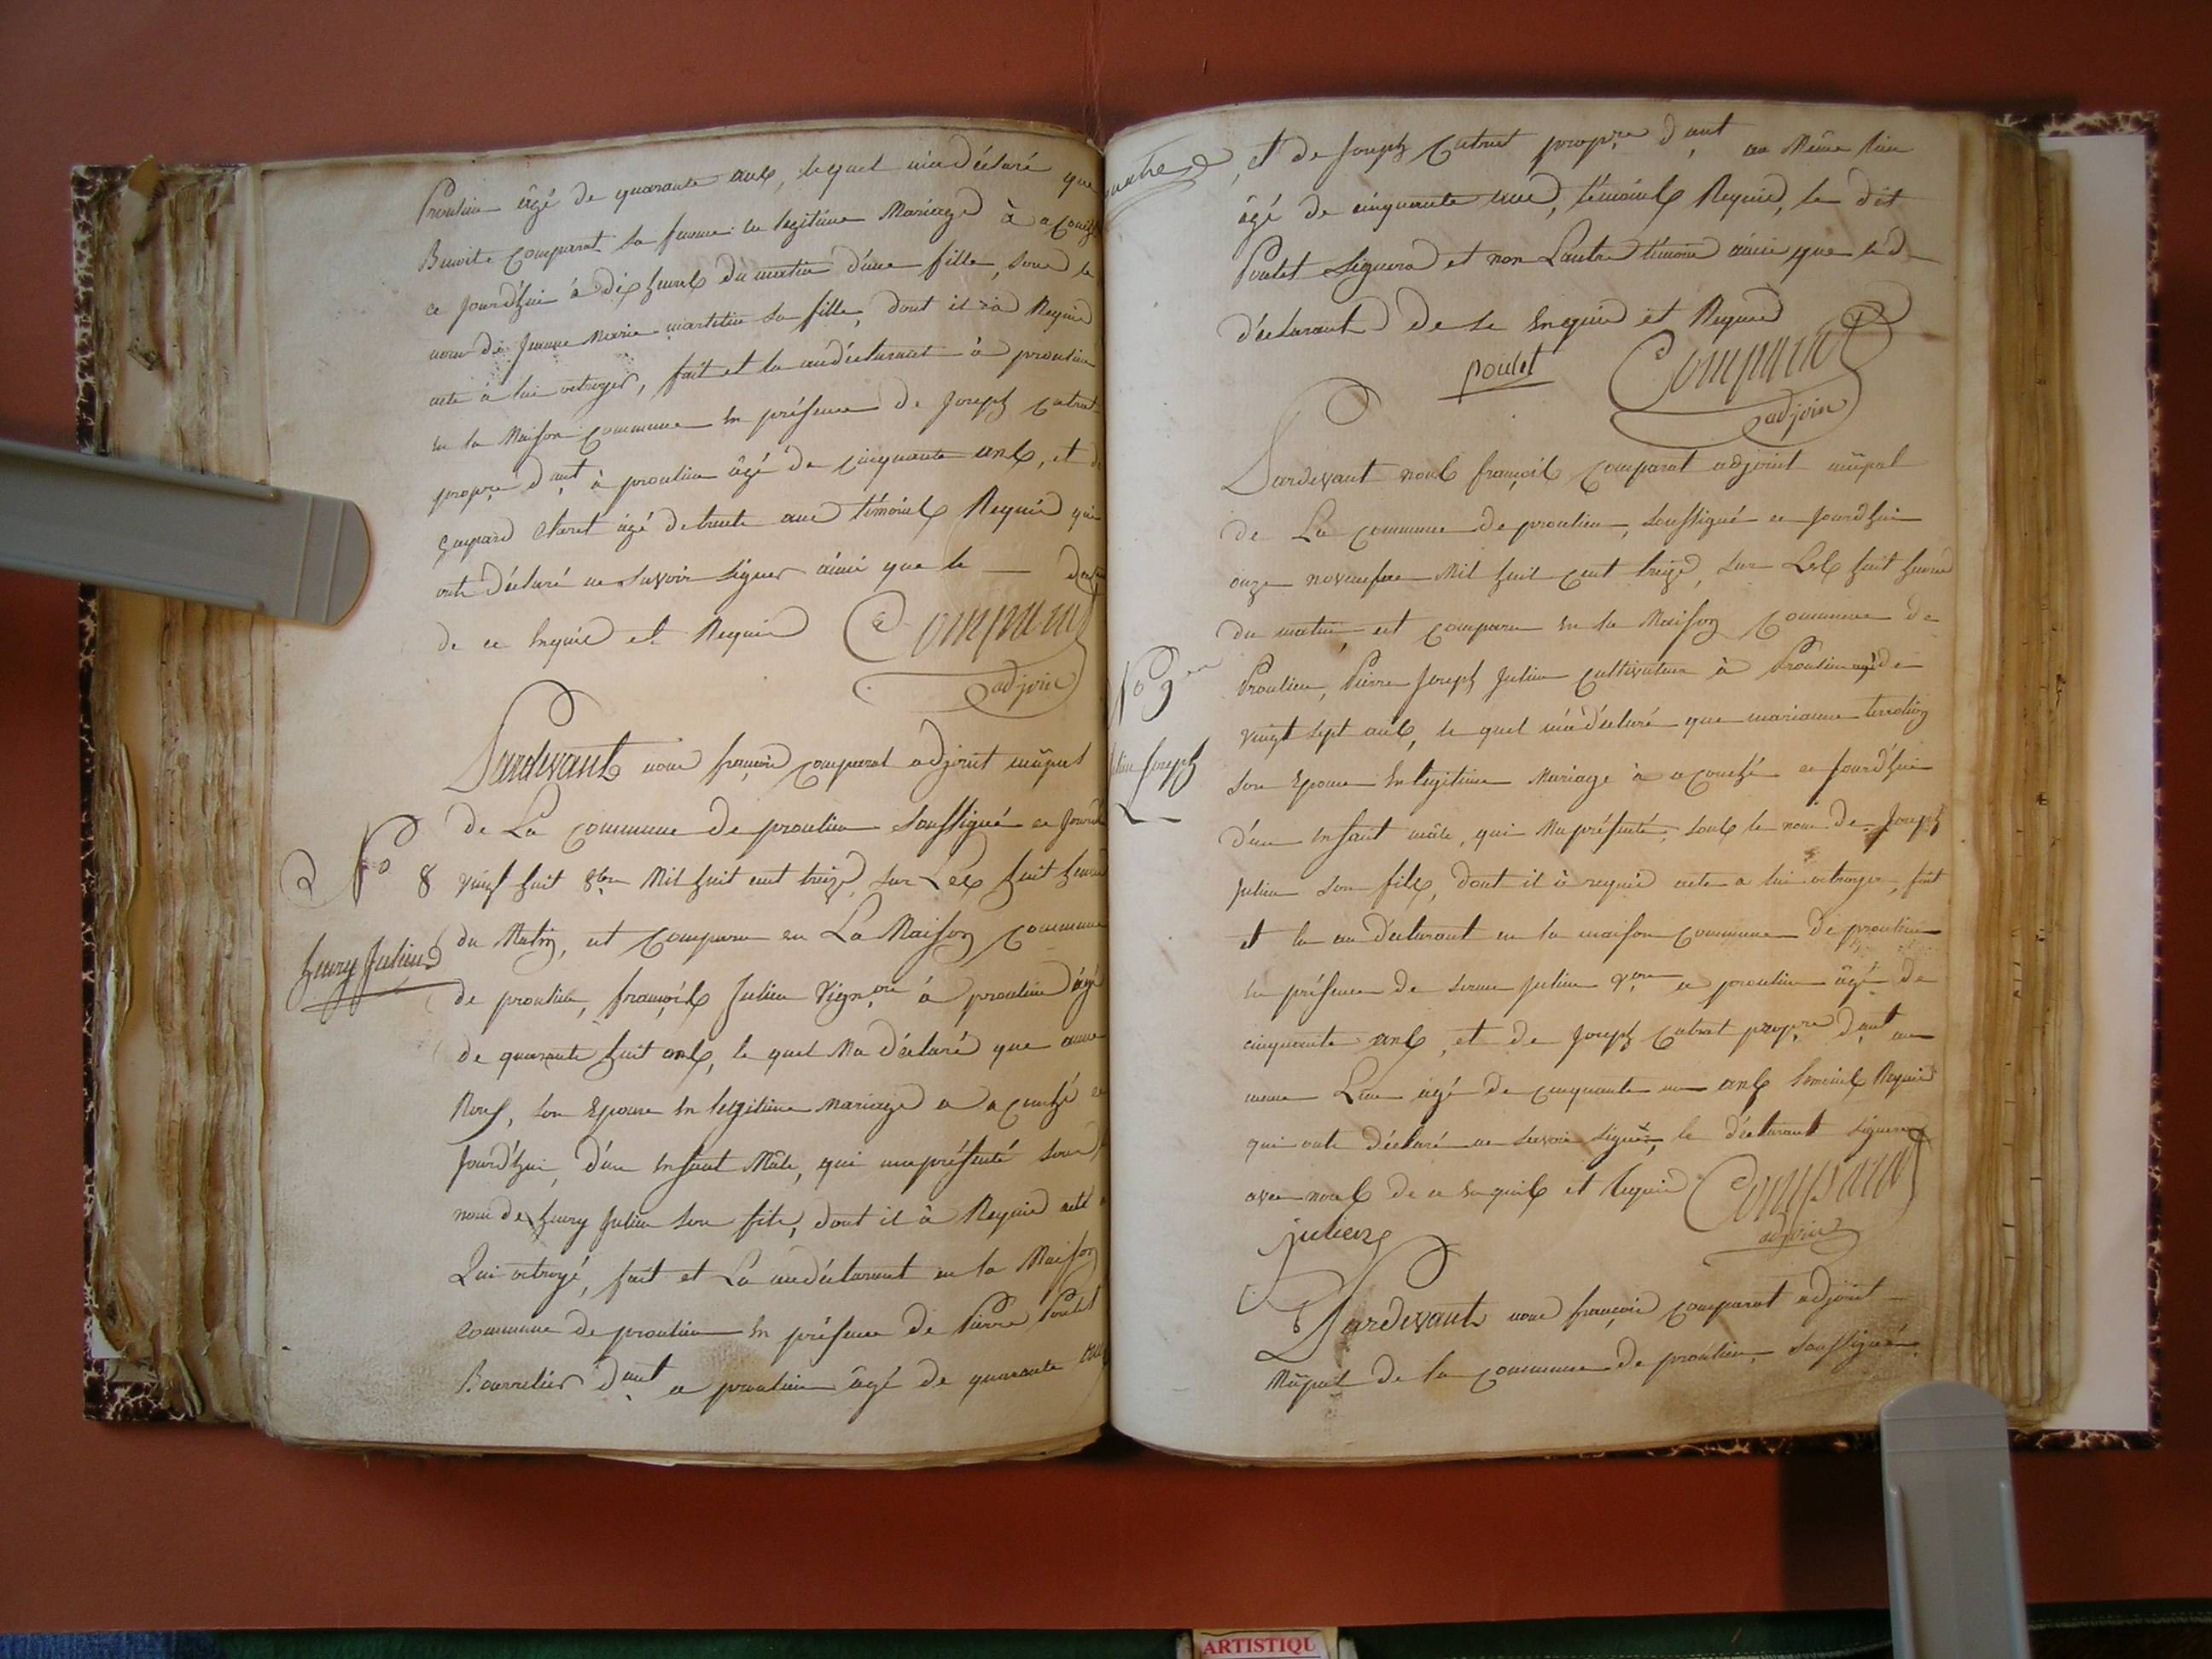 Proulieu âgé de quarante ans, lequel m'a déclaré que
Benoite Comparat sa femme en legitime Mariage à acouché
ce jourd'hui à dix heures du matin d'une fille, sous le
nom de Jeanne Marie sa fille, dont il à Requis
acte à lui octroyer, fait et lu au déclarant à proulieu
en la Maison Commune en présence de Joseph Catrat
propre d'ant à proulieu âgé de cinquante ans, et de
gaspard Claret âgé de trente ans témoins Requis qui
ont déclaré ne savoir signer ainsi que le
de ce Enquis et Requis
Comparat
adjoint
Pardevant nous françois comparat adjoint mûpal
de La commune de proulieu soussigné ce jourd'hui
N° 8
vingt huit 8bre Mil huit cent treize, sur Les huit heures
henry Julien
du Matin, est Comparu en La Maison Commune
de proulieu, françois Julien Vign.on à proulieu âgé
de quarante huit ans, le quel Ma déclaré que anne
Roux, son Epouse En legitime mariage a acouché ce
Jourd'hui, d'un Enfant Mâle, qui ma présenté sous le
nom de henry Julien son fils, dont il à Requis acte a
Lui octroyé, fait et Lu au déclarant en la Maison
Commune de proulieu En présence de Pierre Poulet
Bourrelier d'ant a proulieu âgé de quarante
quatre, et de Joseph Catrat propre d'ant au Même lieu
âgé de cinquante un, témoins Requis, le dit
Poulet Signera et non Lautre témoin ainsi que le d.
déclarant de ce Enquis et Requis
poulet
Comparat
adjoint
Pardevant nous françois Comparat adjoint mûpal
de La commune de proulieu, soussigné ce jourd'hui
onze novembre Mil huit cent treize, sur Les huit heures
du matin, est comparu en la Maison Commune de
N° 9
Proulieu, Pierre Joseph Julien cultivateur à Proulieu agé de
vingt sept ans, le quel m'à déclaré que marianne
Julien Joseph
son Epouse En legitime Mariage à acouché ce jourd'hui
d'un Enfant mâle, qui Ma présenté, sous le nom de Joseph
Julien son fils, dont il à requis acte a lui octroyer, fait
et lu au déclarant en la maison commune de proulieu
en présence de Julien a proulieu âgé de
cinquante ans, et de Joseph Catrat propre d'ant au
meme Lieu âgé de cinquante un ans témoins Requis
qui ont déclaré ne savoir signer, le déclarant signera
avec nous de ce Enquis et Requis
Comparat
adjoint
julien
Pardevant nous françois comparat adjoint
Mûpal de la commune de proulieu, soussigné
ARTISTIQU